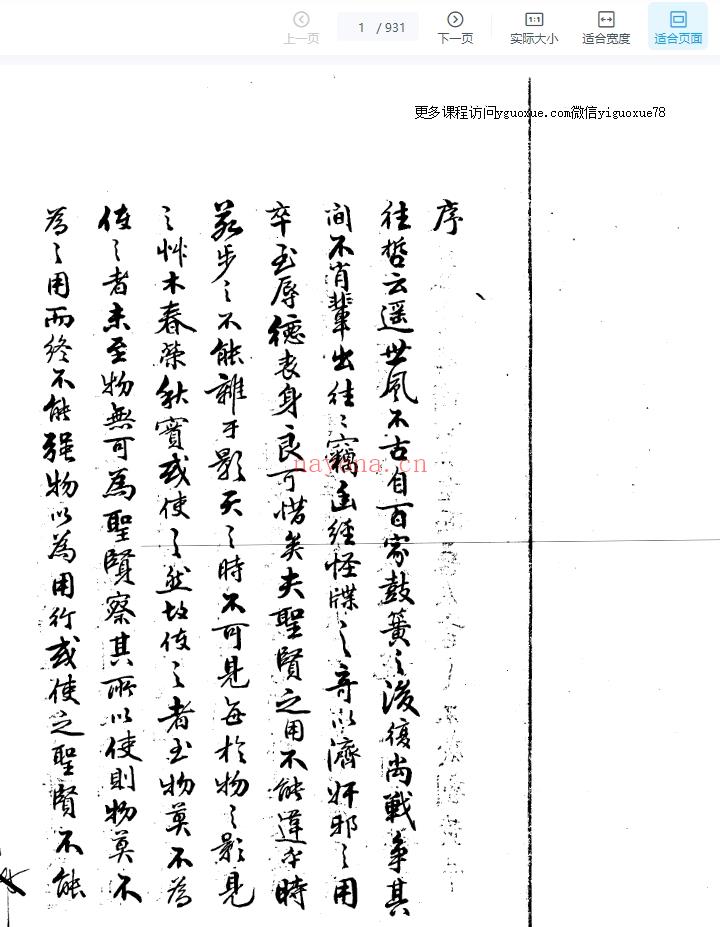 上一页
1 / 931
下一页
实际大小
适合宽度
适合页面
更多课程访问yguoxue.com微信yiguoxue78
序
往哲云遥世风不古自百家鼓簧之後復尚戰爭其
间不肖輩出往〻竊幽經怪牒之奇以濟奸邪之用
卒至辱德喪身良可惜矣夫聖賢之用不能違乎時
若步之不能離于影天之時不可見每於物之影見
之艸木春荣秋實或使之然故使之者至物莫不為
使之者未至物無可為聖賢察其所以使則物莫不
為之用而終不能强物以為用行或使之聖賢不能
nayana.cn